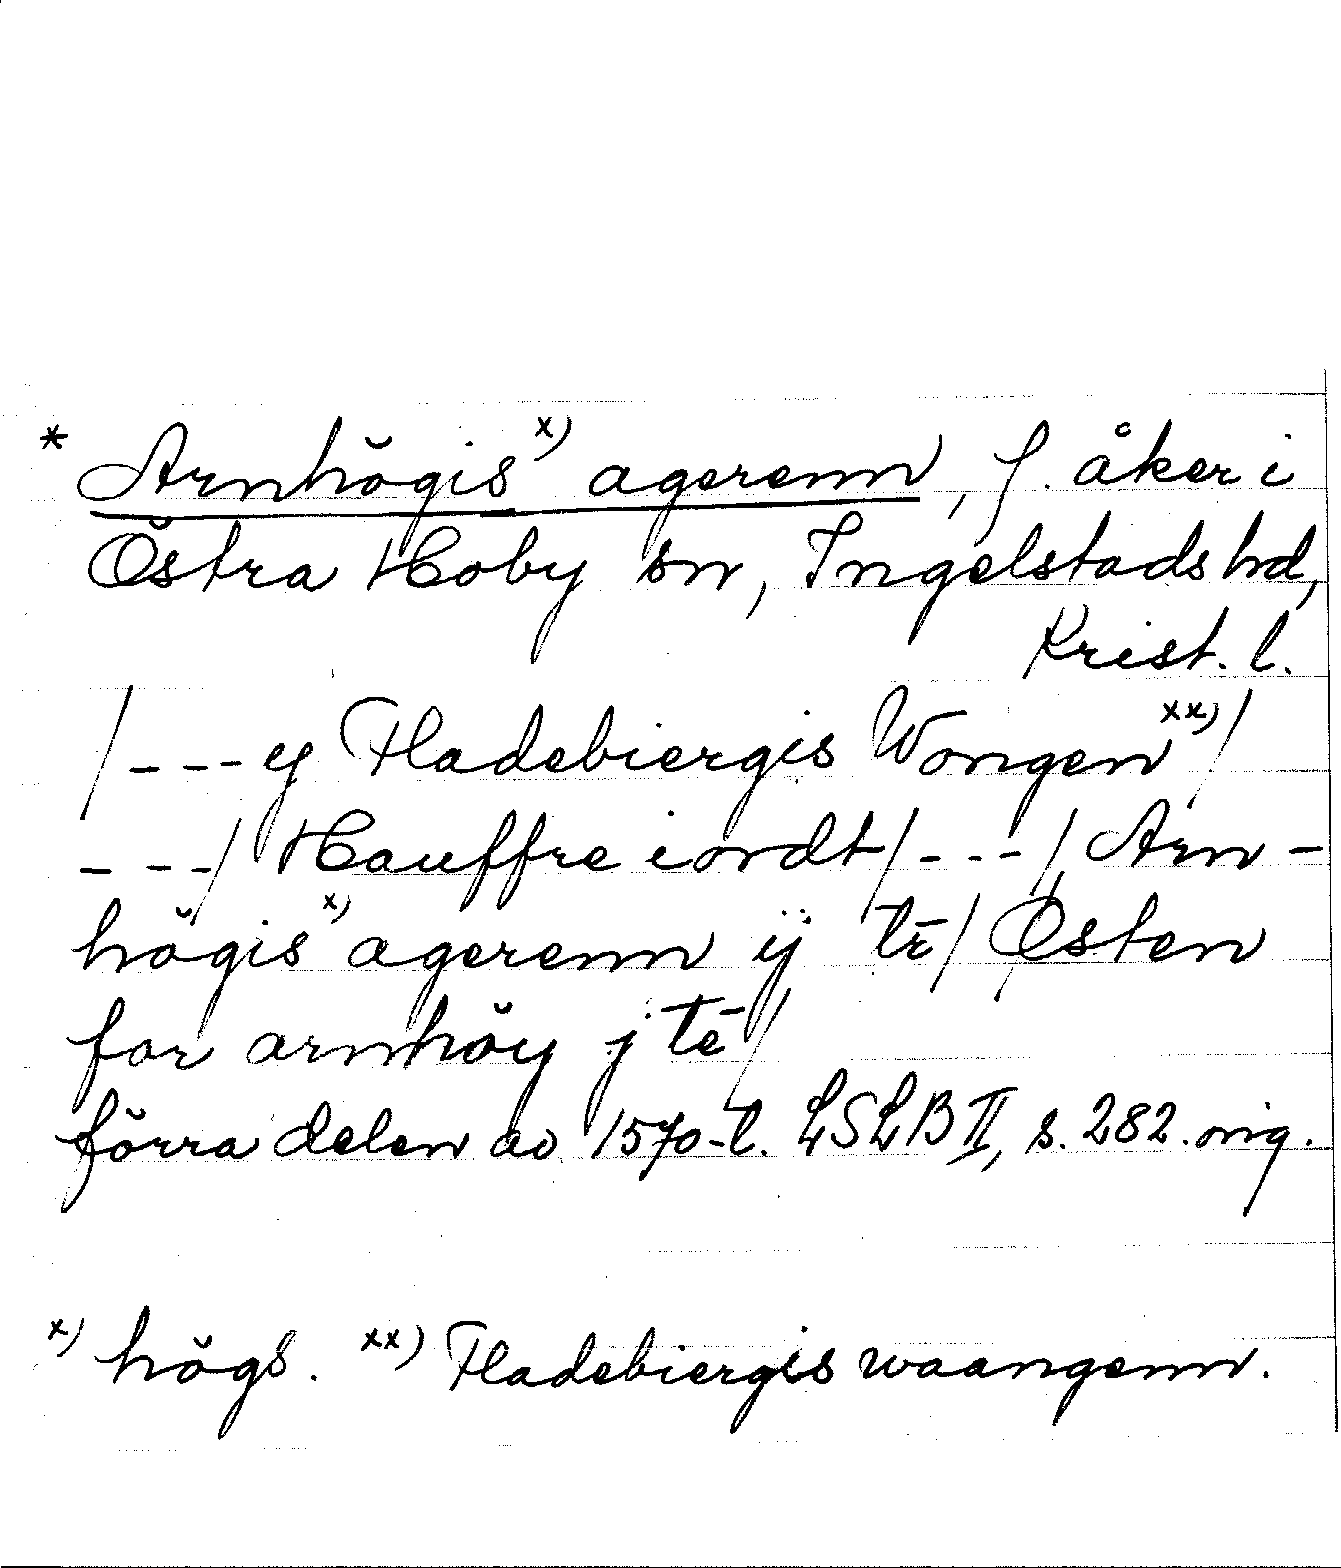 * Arnhögis x) agerenn, f. åker i
Östra Hoby sn, Ingelstads hd,
Krist. l.
/---ej Fladebiergis Wongen xx)/
---/ Hauffre iordt/---/ Arn-
högis x) agerenn ij tr̄/ Östen
for arnhöy j tē/
förra delen av 1570-l. LSLB II, s. 282. orig.
x) högs. xx) Fladebiergis waangenn.